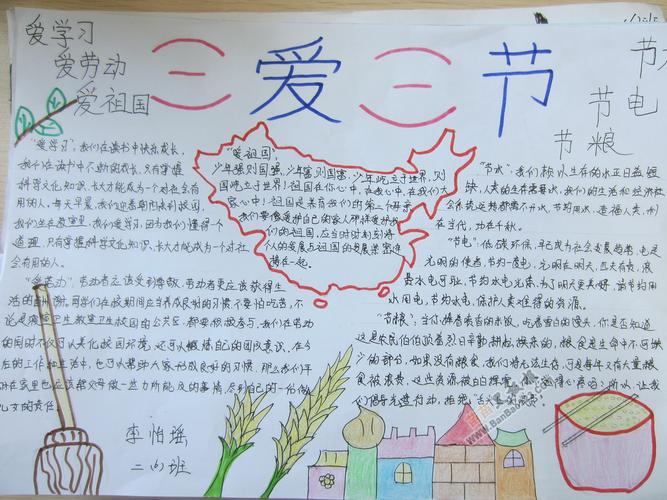 爱学习
爱劳动
爱祖国
三爱三节
节水
节电
节粮
"爱学习",我们在读书中快乐成长,
我们在读书中不断的成长,只有掌握
科学文化知识,长大才能成为一个对社会有
用的人,每天早晨,我们迎着朝阳来到校园,
我们生在教室里,我们爱学习,因为我们懂得一个
道理,只有掌握科学文化知识,长大才能成为一个对社
会有用的人。
"爱劳动",劳动者应该受到尊敬,劳动者更应该获得生
活的
同学们在校期间应该养成良好的习惯不要怕吃苦,不
论是 教室卫生校园的公共区,都要积极参与,我们在劳动
的同时不仅可以美化校园环境,还可以锻炼自己的团队意识。在今
后的工作和生活中,也可以帮助大家形成良好的习惯。那么我们平
时在家里也应该帮父母做一些力所能及的事情,尽到自己的一份做
儿女的责任。
"爱祖国",
少年强则国强,少年富则国富,少年屹立于世界,则
国屹立于世界!祖国在你心中,在我心中,在我们大
家心中!祖国是养育我们的第二个母亲
我们要像爱护自己的家人那样爱护我
们的祖国,应当时时刻刻将
个人的发展与祖国的发展紧密连
接在一起。
"节水":我们赖以生存的水正日益短
缺,人类的生存需要水,我们的生活和经济社
会的长远发展都离不开水,节约用水,造福人类,利
在当代,功在千秋。
"节电":低碳环保,早已成为社会发展趋势,电是
光明的使者,节约一度电,光明在明天,五大有责,浪
费水电可耻,节约水电光荣,为了明天更美好,请节约用
水用电,节约水电,保护人类难得的资源。
"节粮":当你捧着喷香的米饭,吃着雪白的馒头,你是否知道
这是农民伯伯脸着烈日辛勤耕耘换来的,粮食是生命中不可缺
少的部分,如果没有粮食,我们将无法生存,可是每年又有大量粮
食被浪费,这些资源被白白
们倡导光盘行动,拒绝"舌尖上的浪费"
李怡瑶
二(6)班